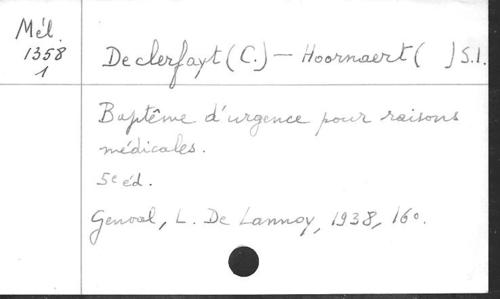 Mél.
1358
1
Declerfayt (C.) — Hoornaert ( ) S.I.
Baptême d'urgence pour raisons
médicales.
5e éd.
Genval, L. De Lannoy, 1938, 16o.